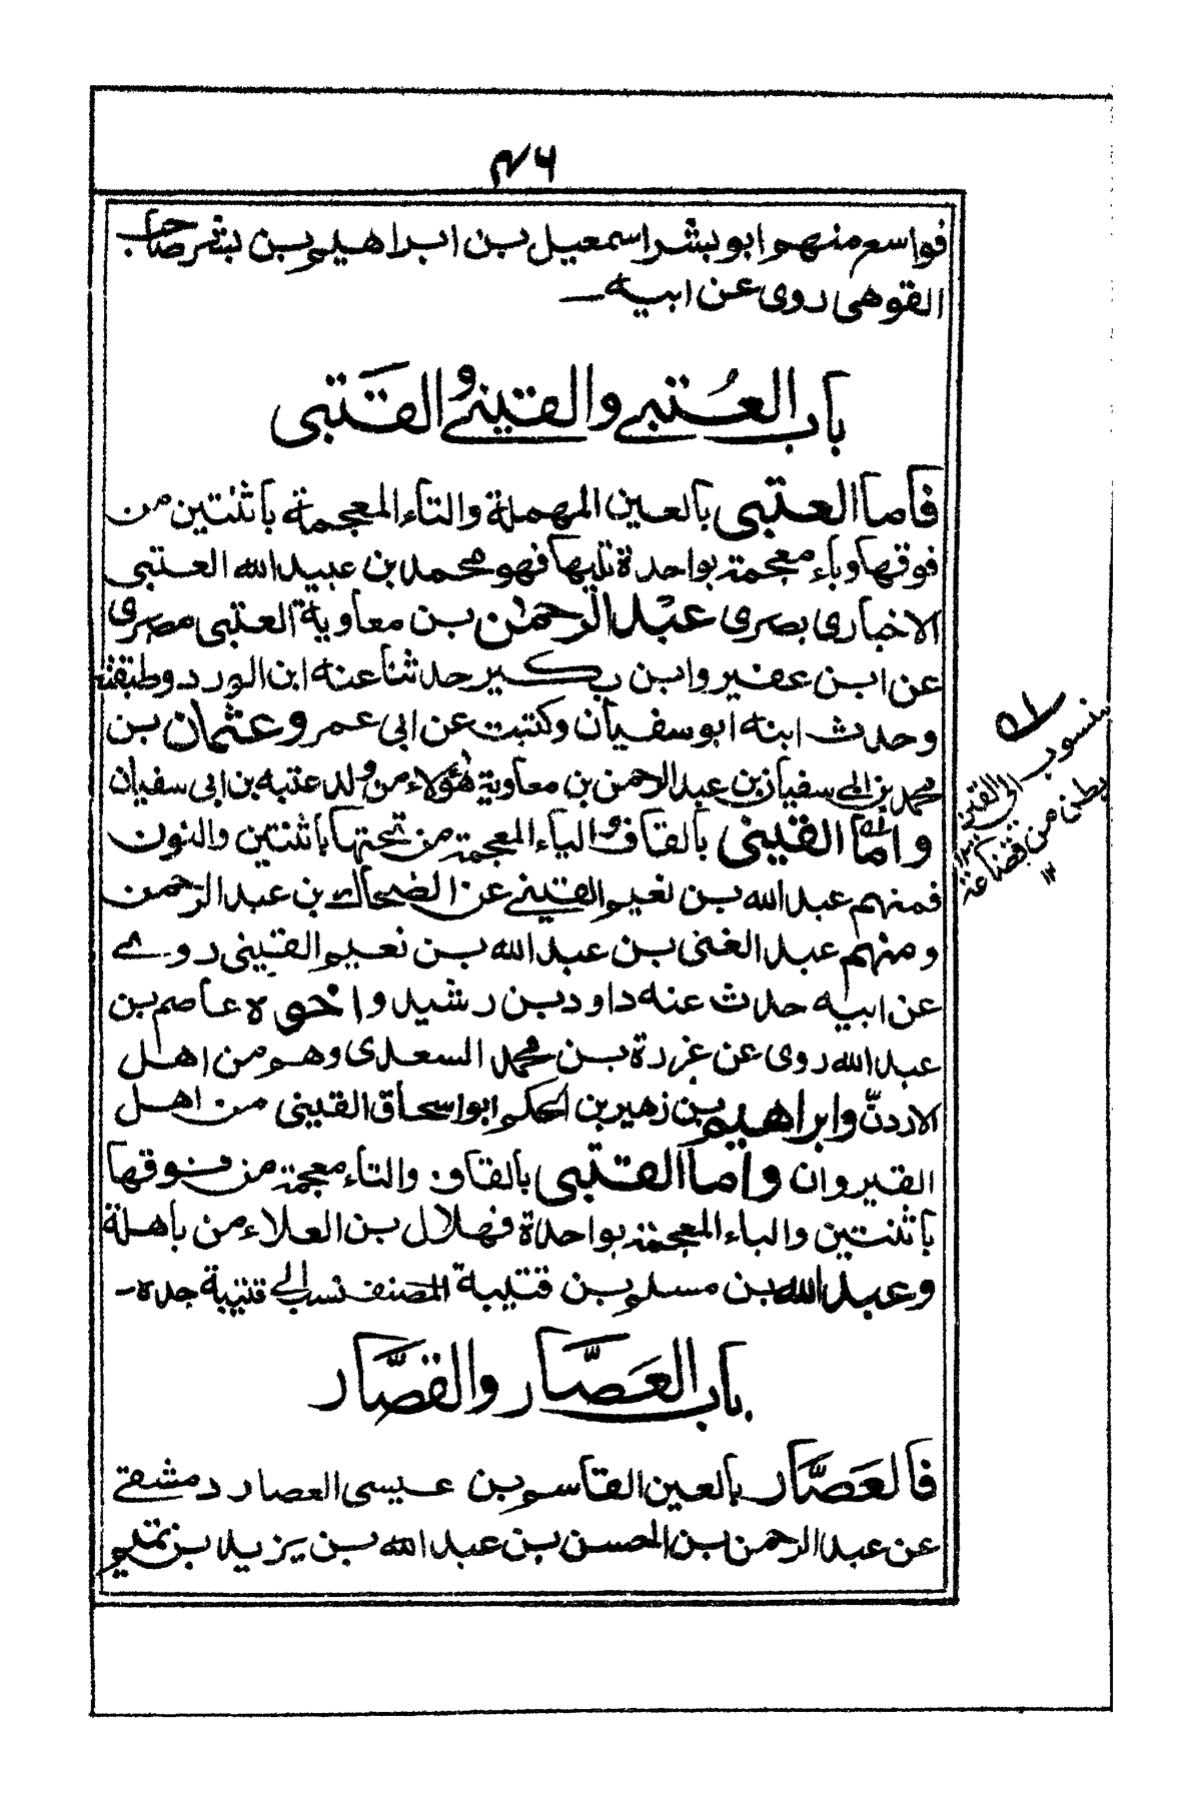 ٤٦
فواسع منهم ابو بشر اسمعيل بن ابراهيم بن بشر صاحب
القوهى روى عن ابيه
باب العُتبي والقيني والقتبى
فاما العتبى بالعين المهملة والتاء المعجمة باثنتين من
فوقها وباء معجمة بواحدة تليها فهو محمد بن عبيد الله العتبى
الاخبارى بصرى عبد الرحمن بن معاوية العتبى مصرى
عن ابن عفير وابن بكير حدثنا عنه ابن الورد وطبقته
وحدث ابنه ابو سفيان وكتبت عن ابى عمرو عثمان بن
محمد بن ابى سفيان بن عبد الرحمن بن معاوية هؤلاء من ولد عتبه بن ابى سفيان
واما القينى بالقاف والياء المعجمة من تحتها باثنتين والنون
فمنهم عبد الله بن نعيم القيني عن الضحاك بن عبد الرحمن
ومنهم عبد الغنى بن عبد الله بن نعيم القينى روے
عن ابيه حدث عنه داود بن رشيد واخوه عاصم بن
عبد الله روى عن عزرة بن محمد السعدى وهم من اهل
الاردنّ وابراهيم بن زهير بن الحكم ابو اسحاق القينى من اهل
القيروان واما القتبى بالقاف والتاء معجمة من فوقها
باثنتين والباء المعجمة بواحدة فهلال بن العلاء من باهلة
وعبد الله بن مسلم بن قتيبة المصنف نسب الى قتيبة جده
باب العَصَّار والقصَّار
فالعَصَّار بالعين القاسم بن عيسى العصار دمشقے
عن عبد الرحمن بن الحسن بن عبد الله بن يزيد بن تميم
منسوب
الى القين
بطن من قضاعة
١٢